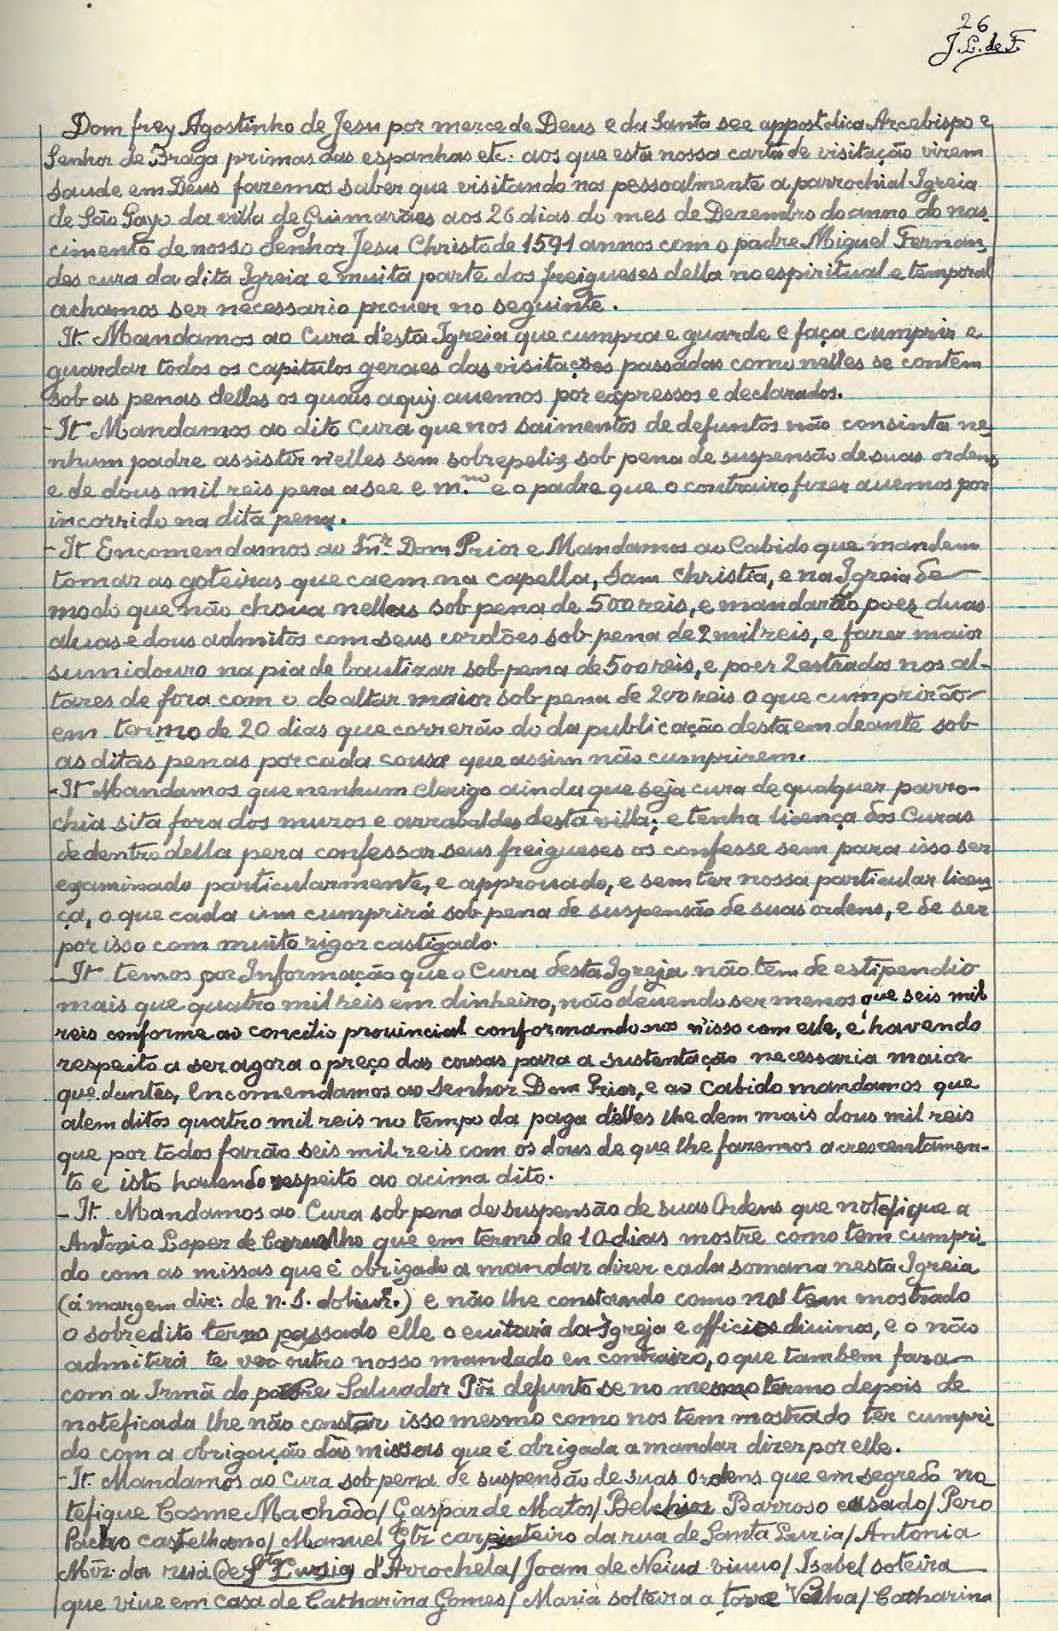 26
J. L. de F.
Dom frey Agostinho de Jesu por merce de Deus e da Santa see appostolica Arcebispo e
Senhor de Braga primas das espanhas etc. aos que esta nossa carta de visitação virem
saude em Deus fazemos saber que visitando nos pessoalmente a parrochial Igreia
de São Payo da villa de Guimarães aos 26 dias do mes de Dezembro do anno do nas-
cimento de nosso Senhor Jesu Christo de 1591 annos com o padre Miguel Fernan
des cura da dita Igreia e muita parte dos freigueses della no espiritual e temporal
achamos ser necessario prouer no seguinte.
It. Mandamos ao Cura d'esta Igreia que cumpra e guarde e faça cumprir e
guardar todos os capitulos geraes das visitações passadas como nelles se contem
sob as penas delles os quais aquy auemos por expressos e declarados.
- It Mandamos ao dito Cura que nos saimentos de defuntos não consinta ne-
nhum padre assistir n'elles sem sobrepeliz sob pena de suspensão de suas ordens
e de dous mil reis pera a see e m.no e o padre que o contrairo fizer auemos por
incorrido na dita pena.
- It Encomendamos ao Snr. Dom Prior e Mandamos ao Cabido que mandem
tomar as goteiras que caem na capella, Sam christia, e na Igreia de
modo que não choua nellas sob pena de 500 reis, e mandarão poer duas
aluas e dous admitos com seus cordões sob pena de 2 mil reis, e fazer maior
sumidouro na pia de bautizar sob pena de 500 reis, e poer 2 estrados nos al-
tares de fora com o do altar maior sob pena de 200 reis o que cumprirão
em termo de 20 dias que correrão do da publicação desta em deante sob
as ditas penas por cada cousa que assim não cumprirem.
- It Mandamos que nenhum clerigo ainda que seja cura de qualquer parro-
chia sita fora dos muros e arrabaldes desta villa; e tenha licença dos Curas
de dentro della pera confessar seus freigueses os confesse sem para isso ser
examinado particularmente, e approuado, e sem ter nossa particular licen
ça, o que cada um cumprirá sob pena de suspensão de suas ordens, e de ser
por isso com muito rigor castigado.
- It temos por Informação que o Cura desta Igreja não tem de estipendio
mais que quatro mil reis em dinheiro, não deuendo ser menos que seis mil
reis conforme ao concilio prouincial conformando nos n'isso com elle, e havendo
respeito a ser agora o preço das cousas para a sustentação necessaria maior
que dantes, Encomendamos ao Senhor Dom Prior, e ao Cabido mandamos que
alem ditos quatro mil reis no tempo da paga d'elles lhe dem mais dous mil reis
que por todos farão seis mil reis com os dous de que lhe fazemos acrescentamen-
to e isto havendo respeito ao acima dito.
- It. Mandamos ao Cura sob pena de suspensão de suas Ordens que notefique a
Antonio Lopez de Carualho que em termo de 10 dias mostre como tem cumpri-
do com as missas que é obrigado a mandar dizer cada somana nesta Igreia
(á margem diz: de n. S. doliur.) e não lhe constando como nos tem mostrado
o sobredito termo passado elle o euitará da Igreja e officios diuinos, e o não
admitirá te ver outro nosso mandado en contrairo, o que tambem fara
com a Irmã do padre Saluador Piz defunto se no mesmo termo depois de
noteficada lhe não constar isso mesmo como nos tem mostrado ter cumpri
do com a obrigação das missas que é obrigada a mandar dizer por elle.
- It. Mandamos ao Cura sob pena de suspensão de suas Ordens que em segredo no
tefique Cosme Machado/ Gaspar de Matos/ Belchior Barroso casado/ Pero
castelhano/ Manuel Glz carpinteiro da rua de Santa Luzia/ Antonia
Miz da rua (de Sta Luzia) d'Arrochela/ Joam de Neiua viuuo/ Isabel solteira
que viue em casa de Catharina Gomes/ Maria solteira a torre Velha/ Catharina